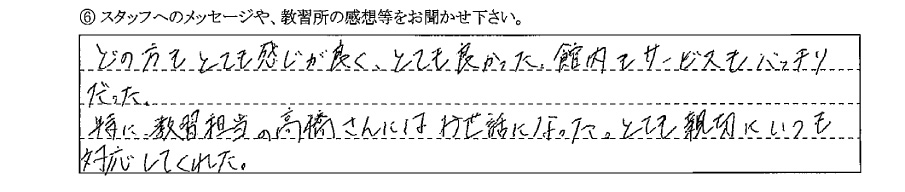 ⑥ スタッフへのメッセージや、教習所の感想等をお聞かせ下さい。
どの方もとても感じが良く、とても良かった、館内もサービスもバッチリ
だった。
特に、教習担当の高橋さんにはお世話になった。とても親切にいつも
対応してくれた。